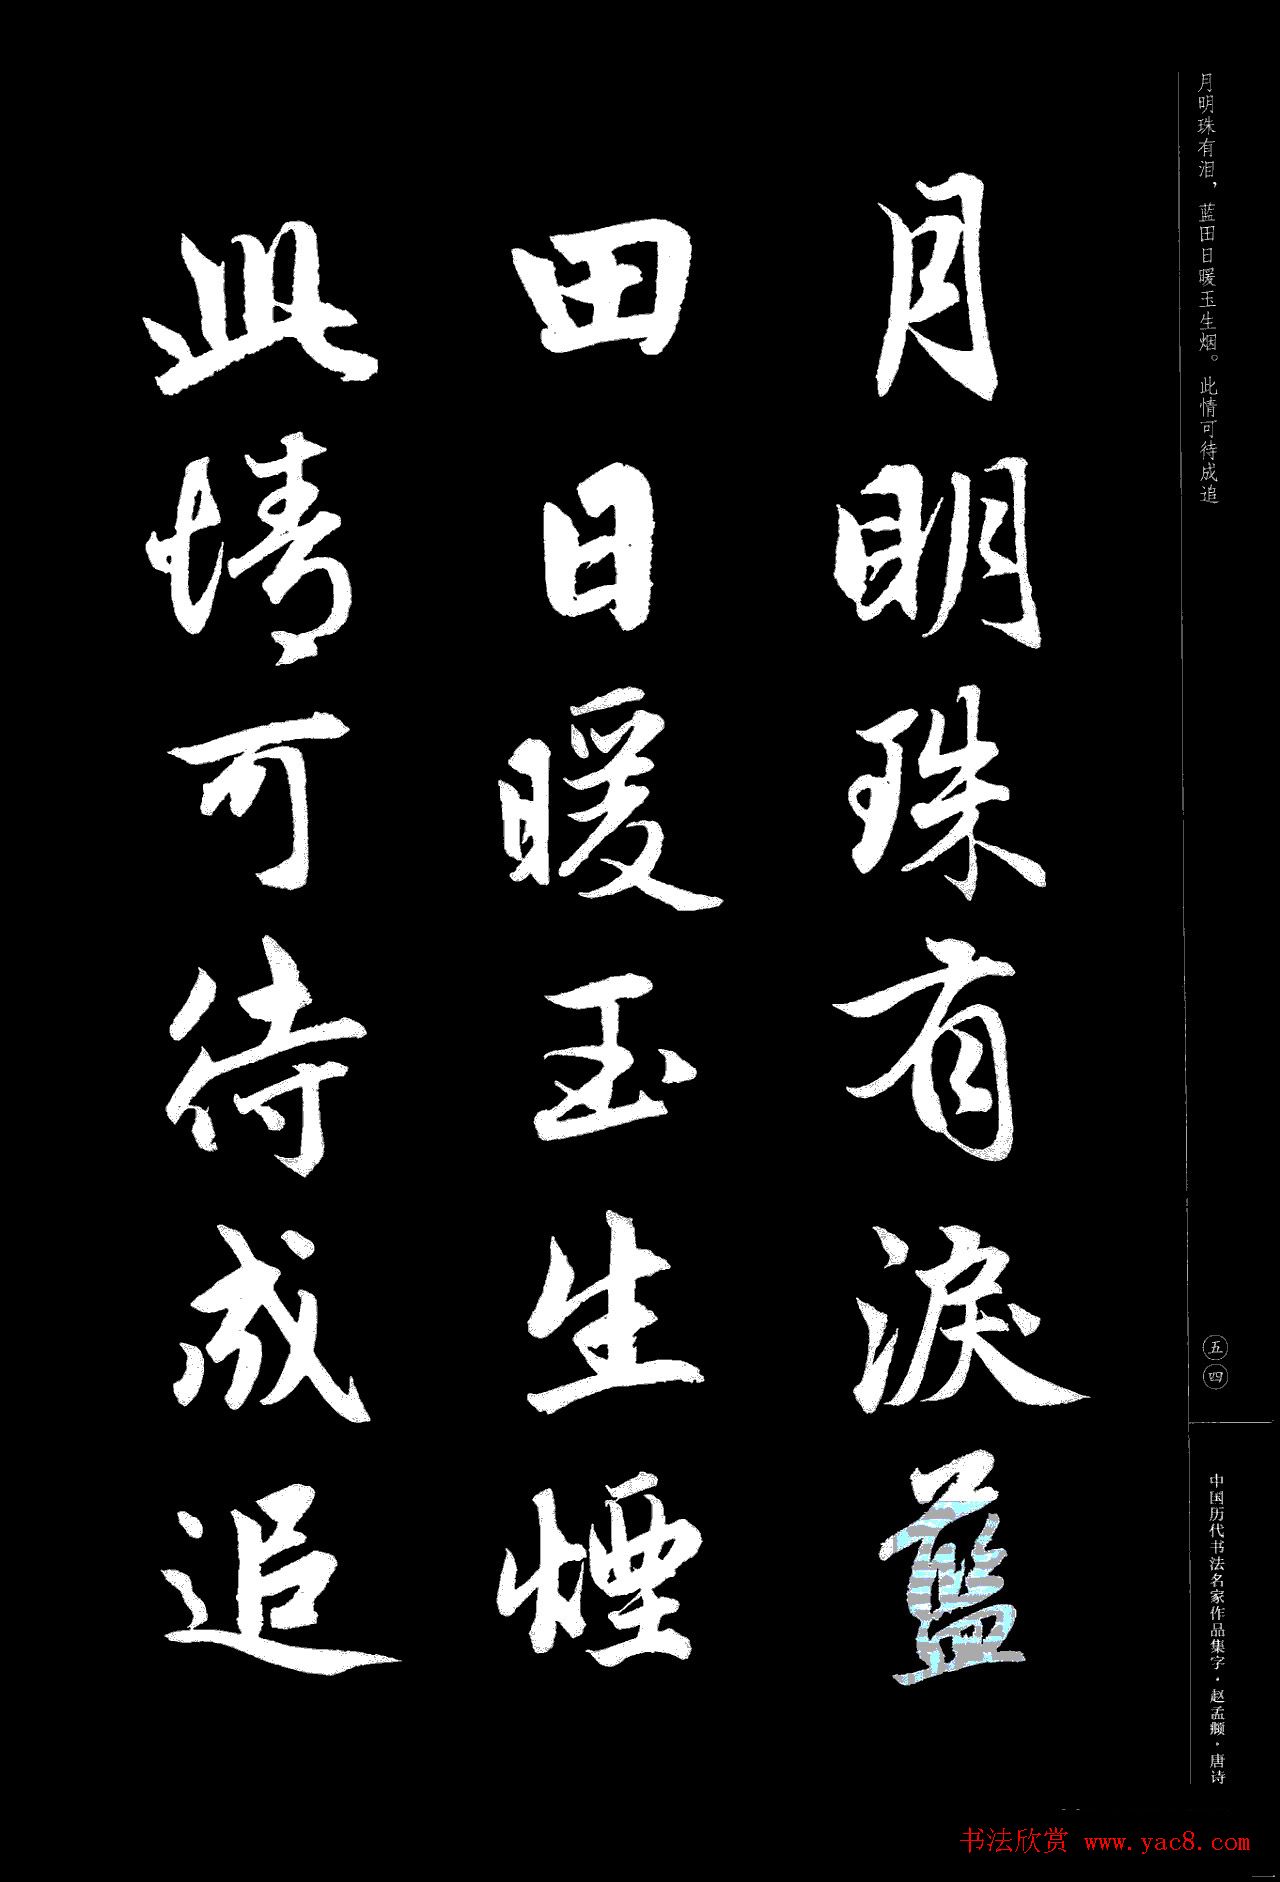 月明珠有淚藍
田日暖玉生煙
此情可待成追
月明珠有泪，蓝田日暖玉生烟。此情可待成追
五四
中国历代书法名家作品集字·赵孟頫·唐诗
书法欣赏 www.yac8.com